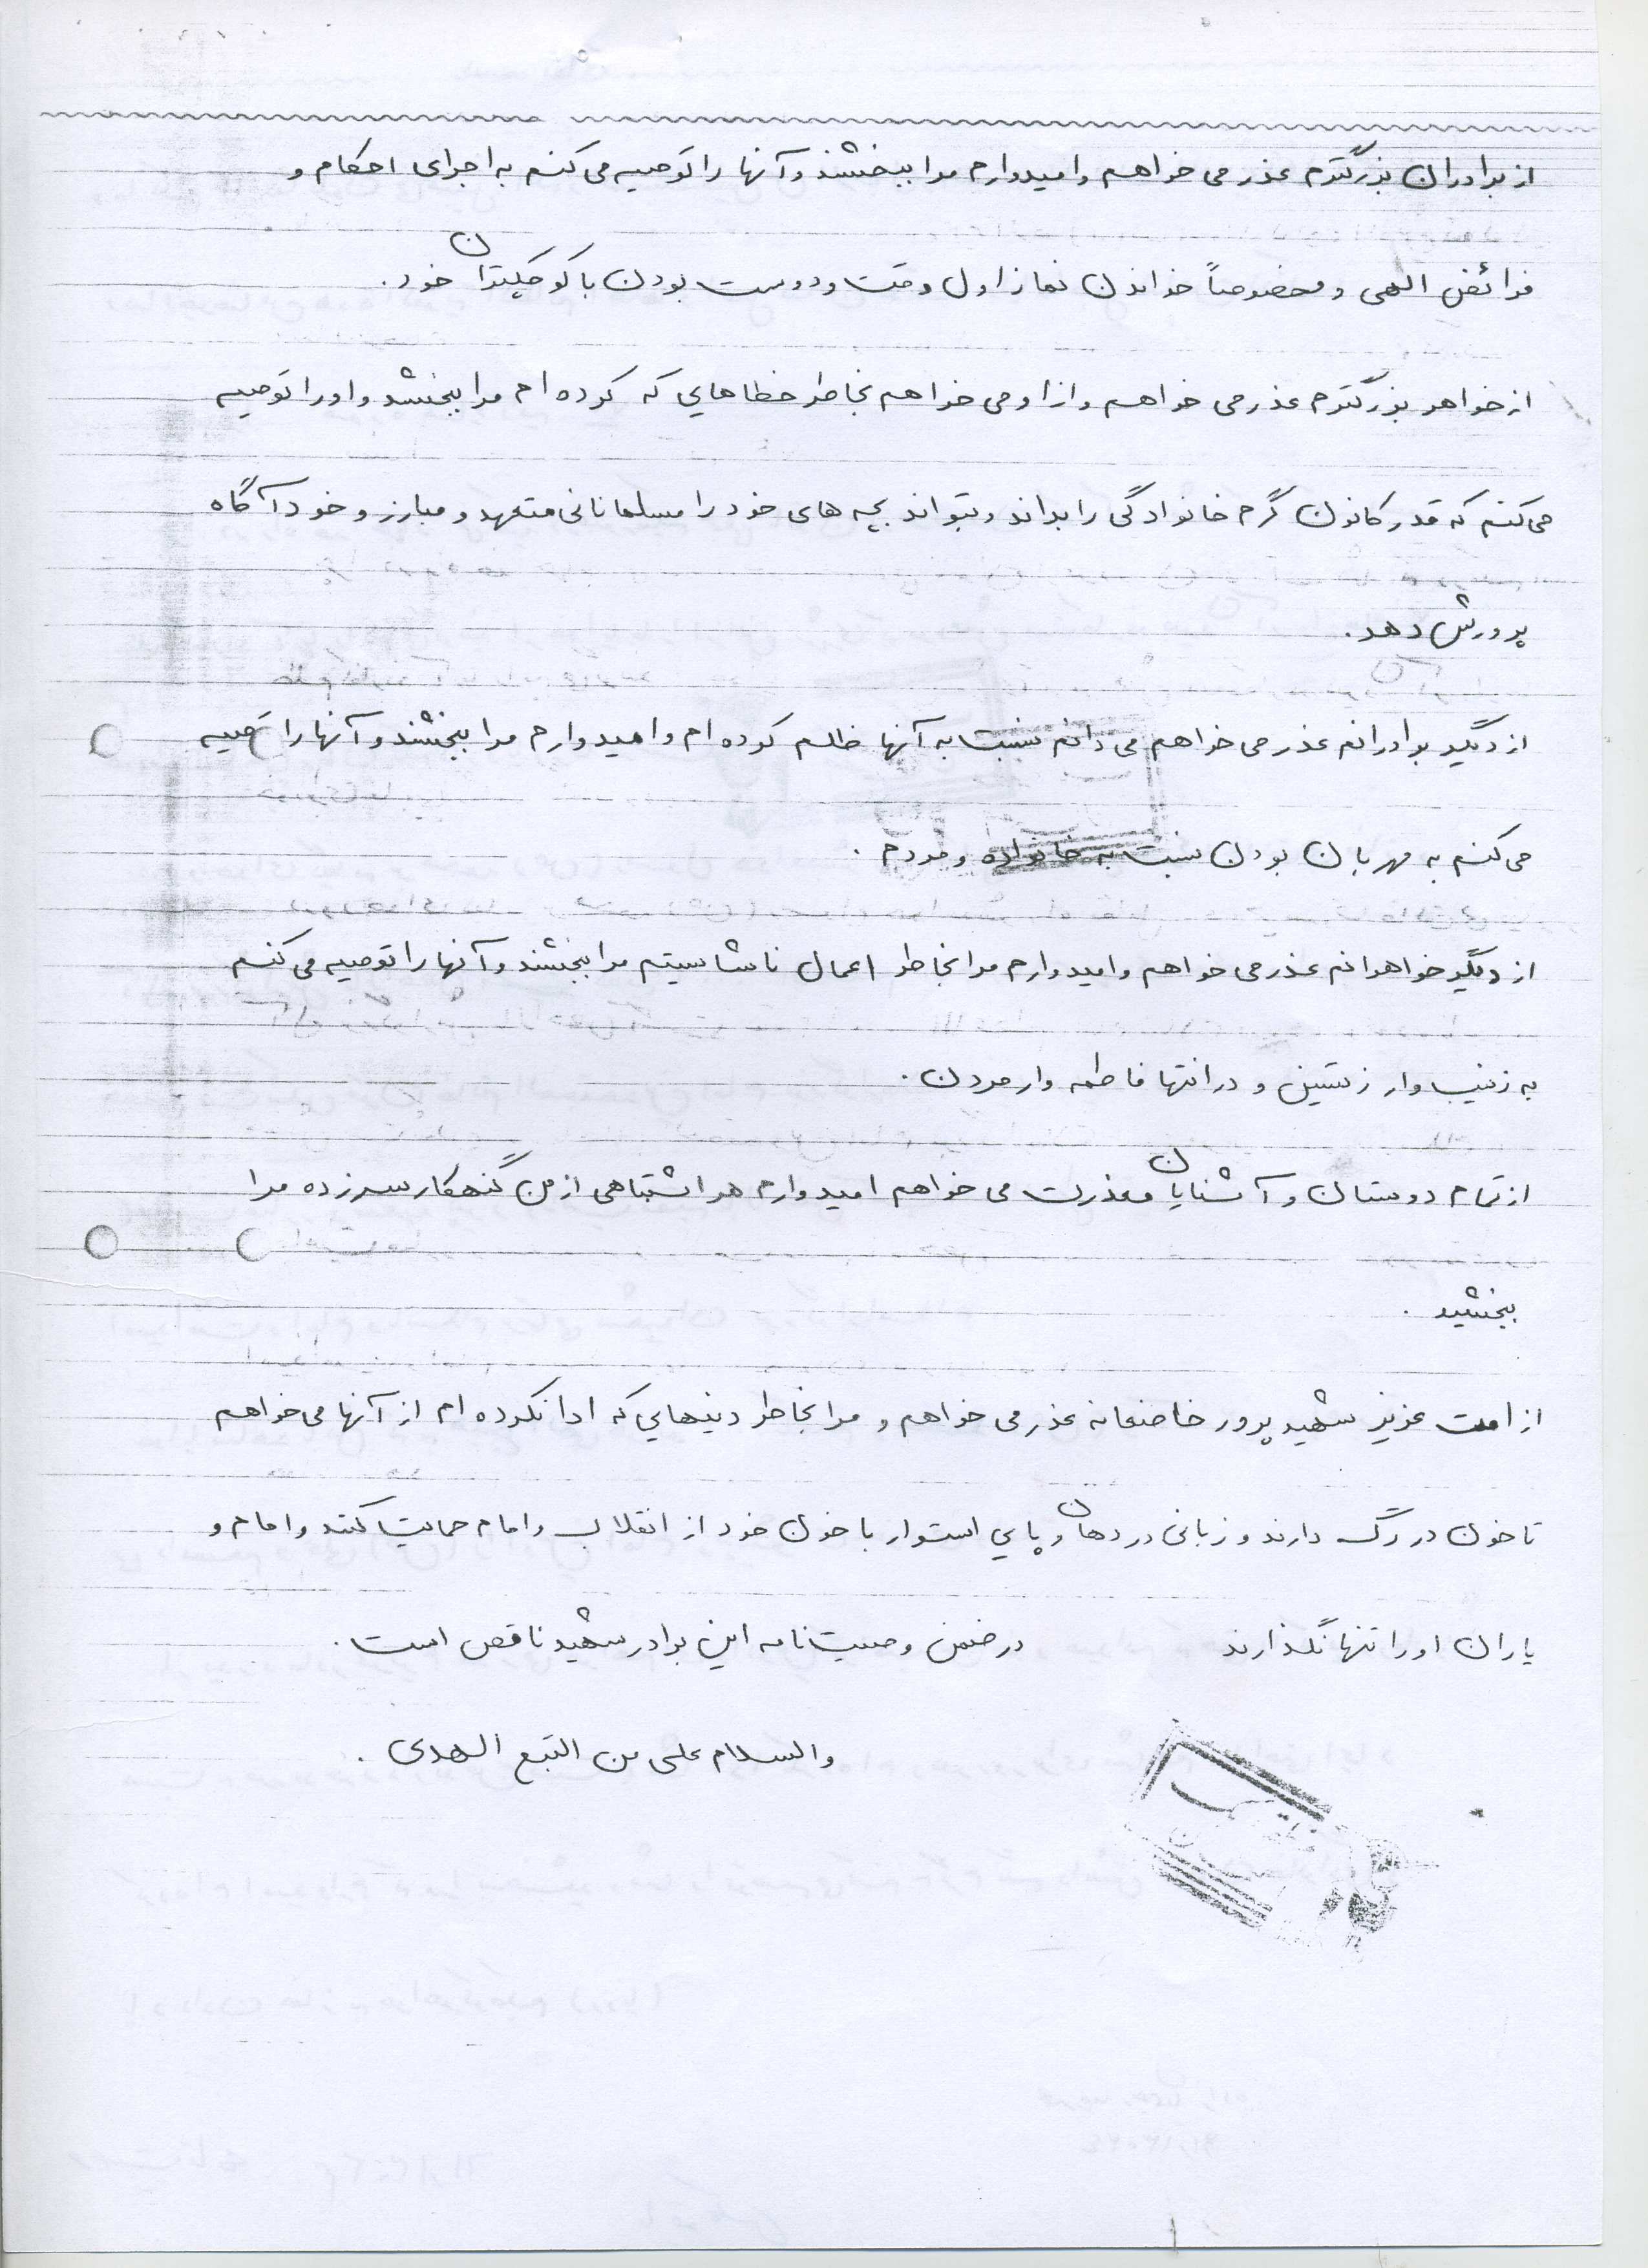 از برادران بزرگترم عذر می خواهم و امیدوارم مرا ببخشند و آنها را توصیه می کنم به اجرای احکام و
فرائض الهی و مخصوصاً خواندن نماز اول وقت و دوست بودن با کوچکتران خود.
از خواهر بزرگترم عذر می خواهم و از او می خواهم بخاطر خطاهایی که کرده ام مرا ببخشد و او را توصیه
می کنم که قدر کانون گرم خانوادگی را بداند و بتواند بچه های خود را مسلمانانی متعهد و مبارز و خودآگاه
پرورش دهد.
از دیگر برادرانم عذر می خواهم می دانم نسبت به آنها ظلم کرده ام و امیدوارم مرا ببخشند و آنها را توصیه
می کنم به مهربان بودن نسبت به خانواده و مردم.
از دیگر خواهرانم عذر می خواهم و امیدوارم مرا بخاطر اعمال ناشایستم مرا ببخشند و آنها را توصیه می کنم
به زینب وار زیستین و در انتها فاطمه وار مردن.
از تمام دوستان و آشنایان معذرت می خواهم امیدوارم هر اشتباهی از من گنهکار سرزده مرا
ببخشید.
از امت عزیز شهید پرور خاضعانه عذر می خواهم و مرا بخاطر دینهایی که ادا نکرده ام از آنها می خواهم
تا خون در رگ دارند و زبانی در دهان و پایی استوار با خون خود از انقلاب و امام حمایت کنند و امام و
یاران او را تنها نگذارند در ضمن وصیت نامه این برادر شهید ناقص است.
والسلام علی من التبع الهدی.